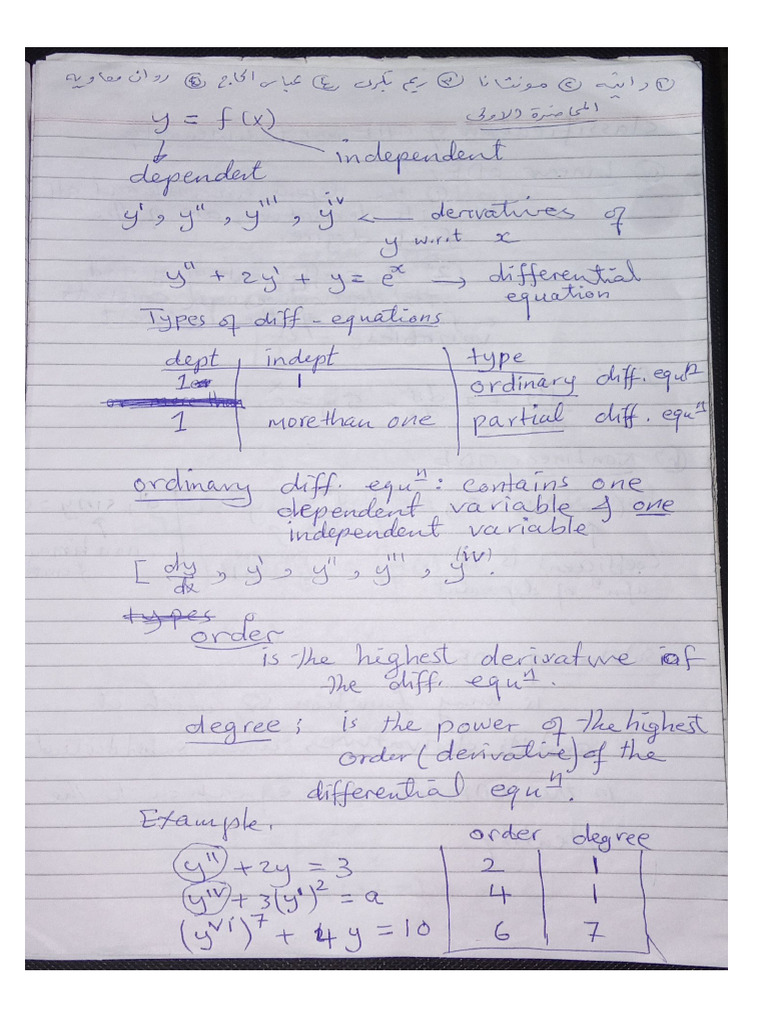 ① دانيه ② مونشانا ③ ريم بكرى ④ عباس الحاج ⑤ روان معاويه
المحاضرة الاولى
y = f(x)
dependent independent
y', y'', y''', y^iv ← derivatives of
y w.r.t x
y'' + 2y' + y = e^x → differential
equation
Types of diff-equations
dept indept type
1 1 ordinary diff. equ^n
1 more than one partial diff. equ^n
ordinary diff. equ^n: contains one
dependent variable & one
independent variable
[ dy/dx, y', y'', y''', y^(iv).
types
order
is the highest derivative of
the diff. equ^n.
degree; is the power of the highest
order (derivative) of the
differential equ^n.
Example. order degree
y'' + 2y = 3 2 1
y^iv + 3(y')^2 = a 4 1
(y^vi)^7 + 4y = 10 6 7